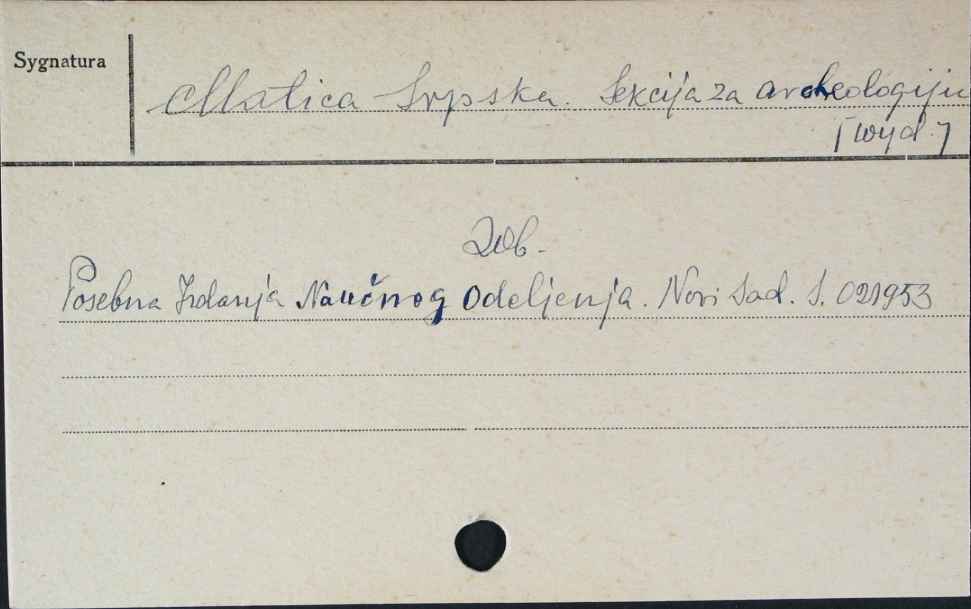 Sygnatura
Matica Srpska. Sekcija za archeologiju
[wyd.]
Zob.
Posebna Izdanja Naučnog Odeljenja. Novi Sad. S. 021953